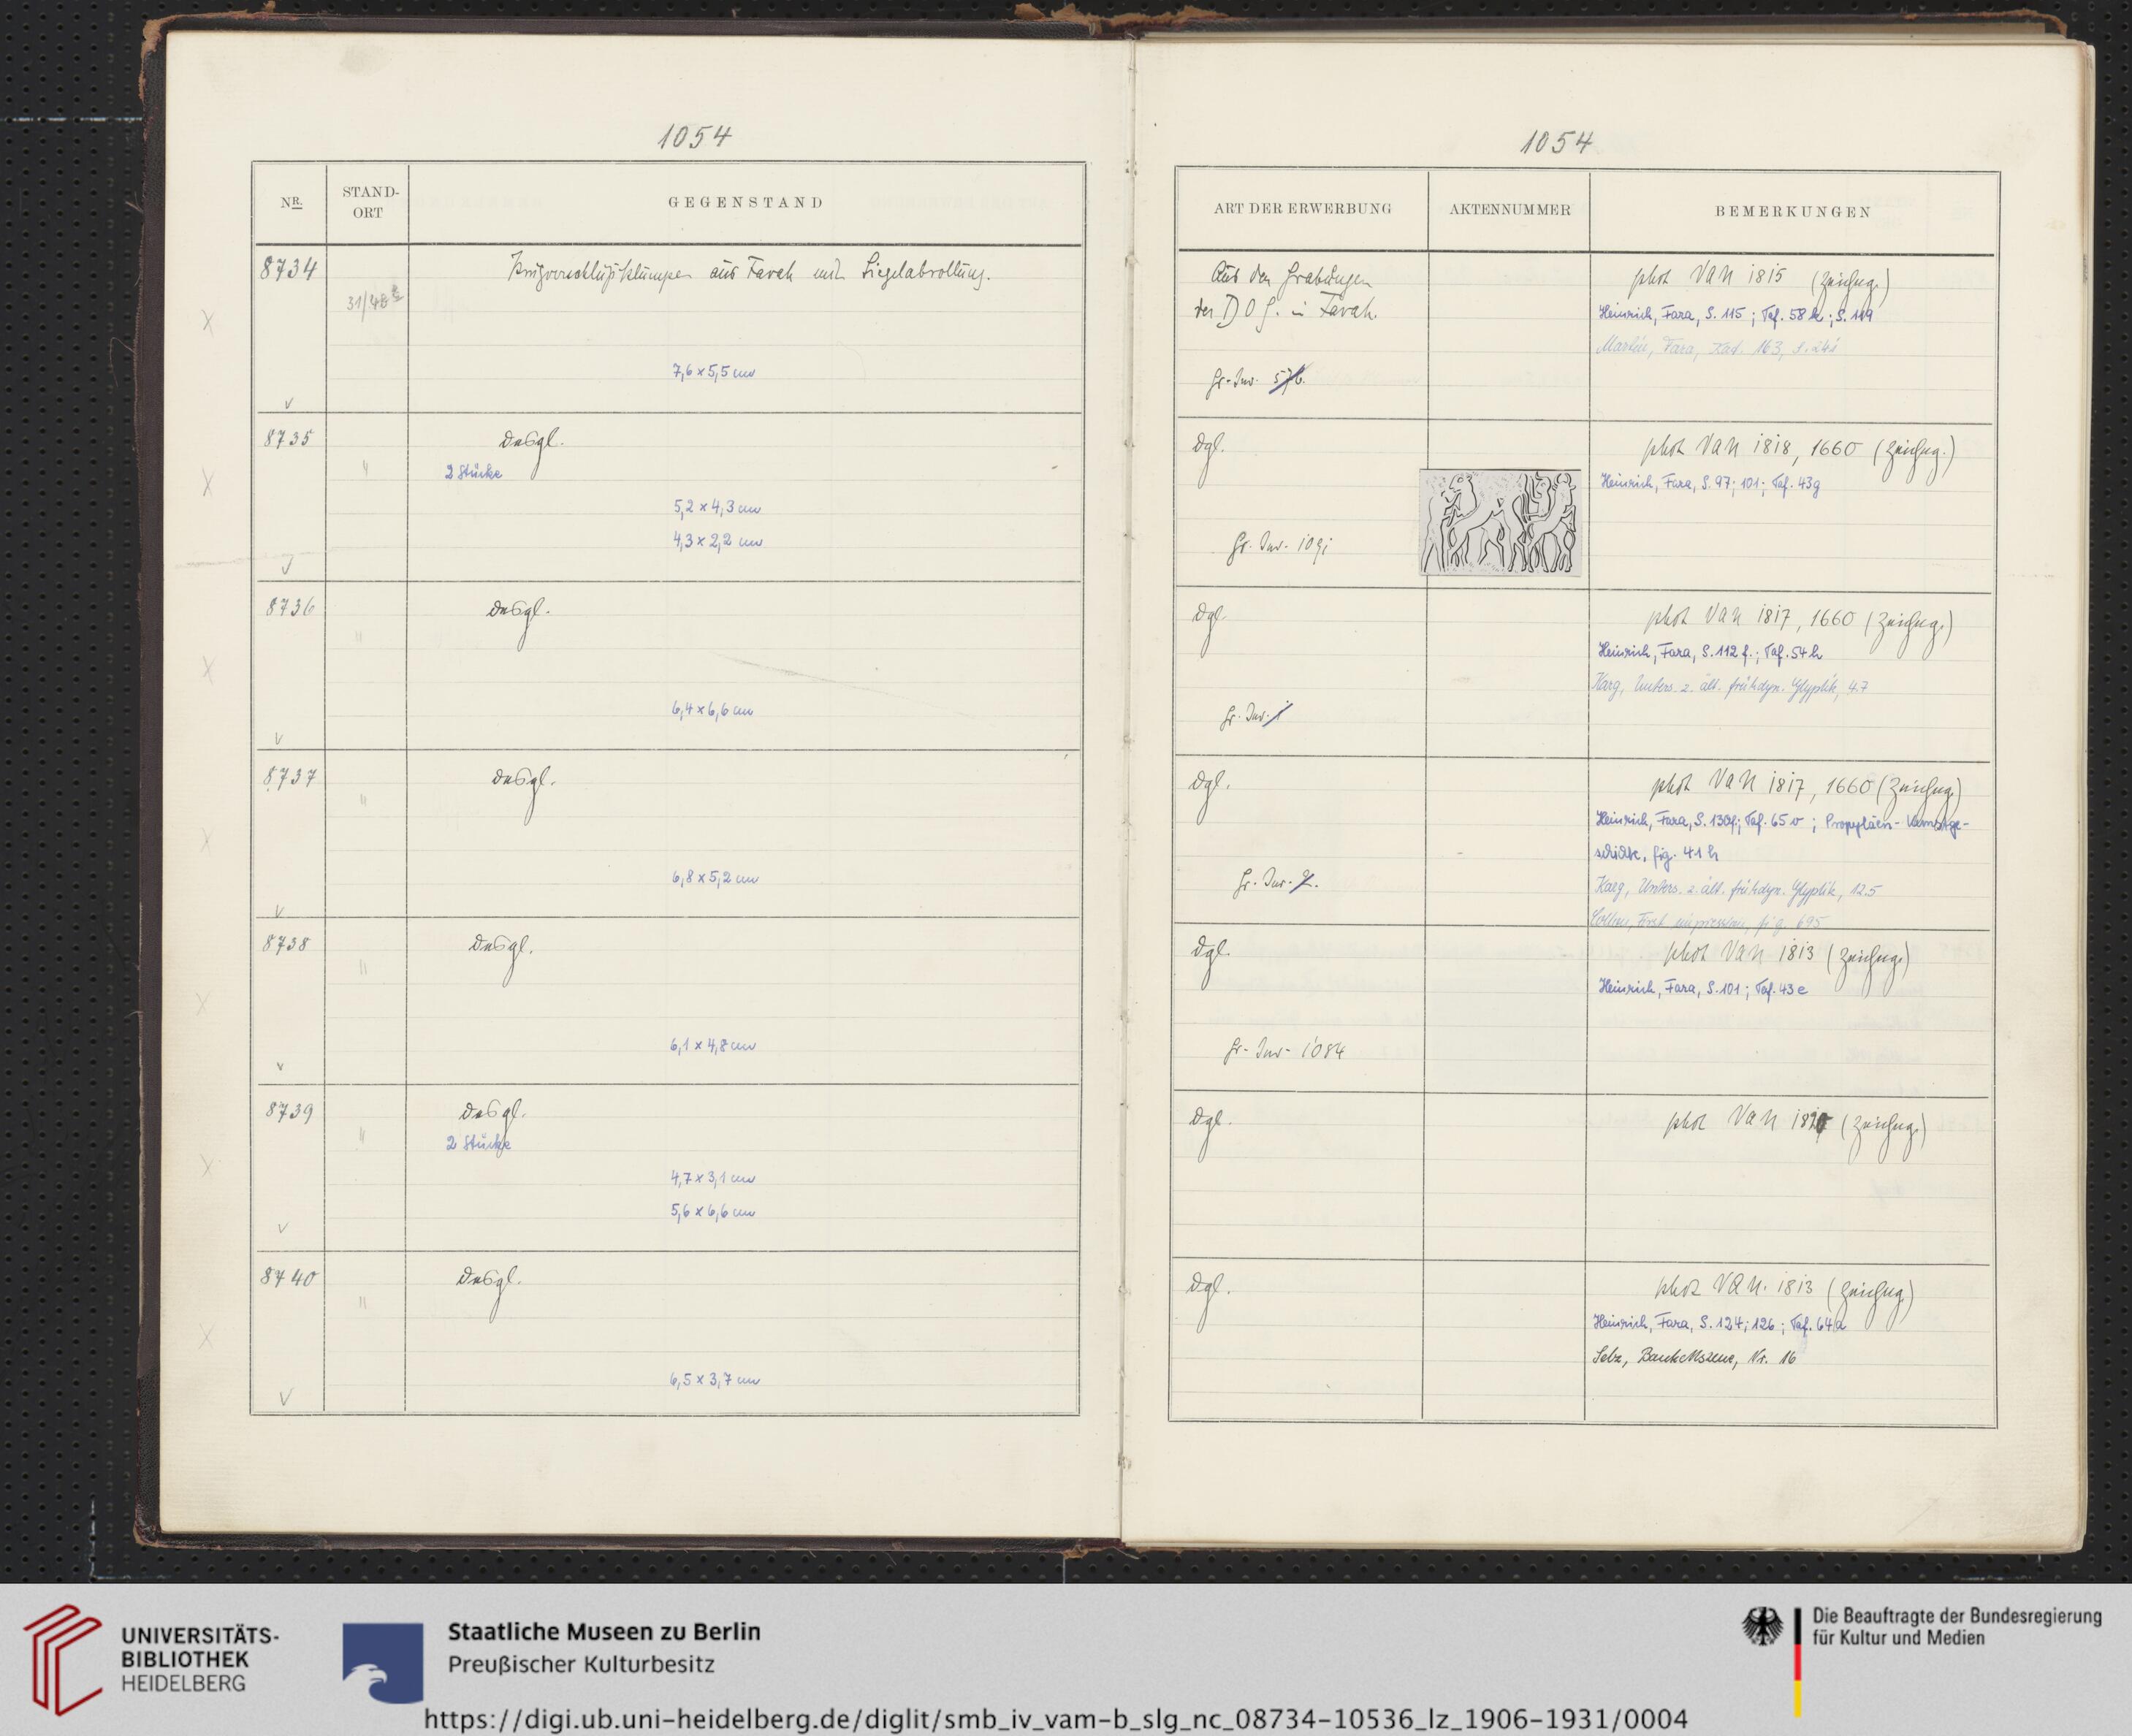 1054
NR.
STAND-
ORT
GEGENSTAND
8734
Krugverschlußklumpen aus Farah mit Siegelabrollung.
31/48
7,6 x 5,5 cm
8735
desgl.
"
2 Stücke
5,2 x 4,3 cm
4,3 x 2,2 cm
8736
desgl.
"
6,4 x 6,6 cm
8737
desgl.
"
6,8 x 5,2 cm
8738
desgl.
"
6,1 x 4,8 cm
8739
desgl.
"
2 Stücke
4,7 x 3,1 cm
5,6 x 6,6 cm
8740
desgl.
"
6,5 x 3,7 cm
1054
ART DER ERWERBUNG
AKTENNUMMER
BEMERKUNGEN
Aus den Grabungen
der D O G. in Farah.
Gr-Inv.
phot VAN 1815 (Zeichng.)
Heinrich, Fara, S. 115; Taf. 58 k; S. 119
Martin, Fara, Kat. 163, S. 241
dgl.
Gr. Inv. 1091
phot VAN 1818, 1660 (Zeichng.)
Heinrich, Fara, S. 97; 101; Taf. 43g
dgl.
Gr. Inv. 1
phot VAN 1817, 1660 (Zeichng.)
Heinrich, Fara, S. 112 f.; Taf. 54 h
Karg, Unters. z. ält. frühdyn. Glyptik, 4.7
dgl.
Gr. Inv. 2.
phot VAN 1817, 1660 (Zeichng)
Heinrich, Fara, S. 130f; Taf. 65 v; Propyläen-Kunstge-
schichte, fig. 41 h
Karg, Unters. z. ält. frühdyn. Glyptik, 12.5
Collon, First impressions, fig. 695
dgl.
Gr-Inv- 1084
phot VAN 1813 (Zeichng.)
Heinrich, Fara, S. 101; Taf. 43 e
dgl.
phot VAN (Zeichng.)
dgl.
phot VAN. 1813 (Zeichng)
Heinrich, Fara, S. 124; 126; Taf. 64 a
Selz, Bankettszene, Nr. 16
UNIVERSITÄTS-
BIBLIOTHEK
HEIDELBERG
Staatliche Museen zu Berlin
Preußischer Kulturbesitz
Die Beauftragte der Bundesregierung
für Kultur und Medien
https://digi.ub.uni-heidelberg.de/diglit/smb_iv_vam-b_slg_nc_08734-10536_lz_1906-1931/0004